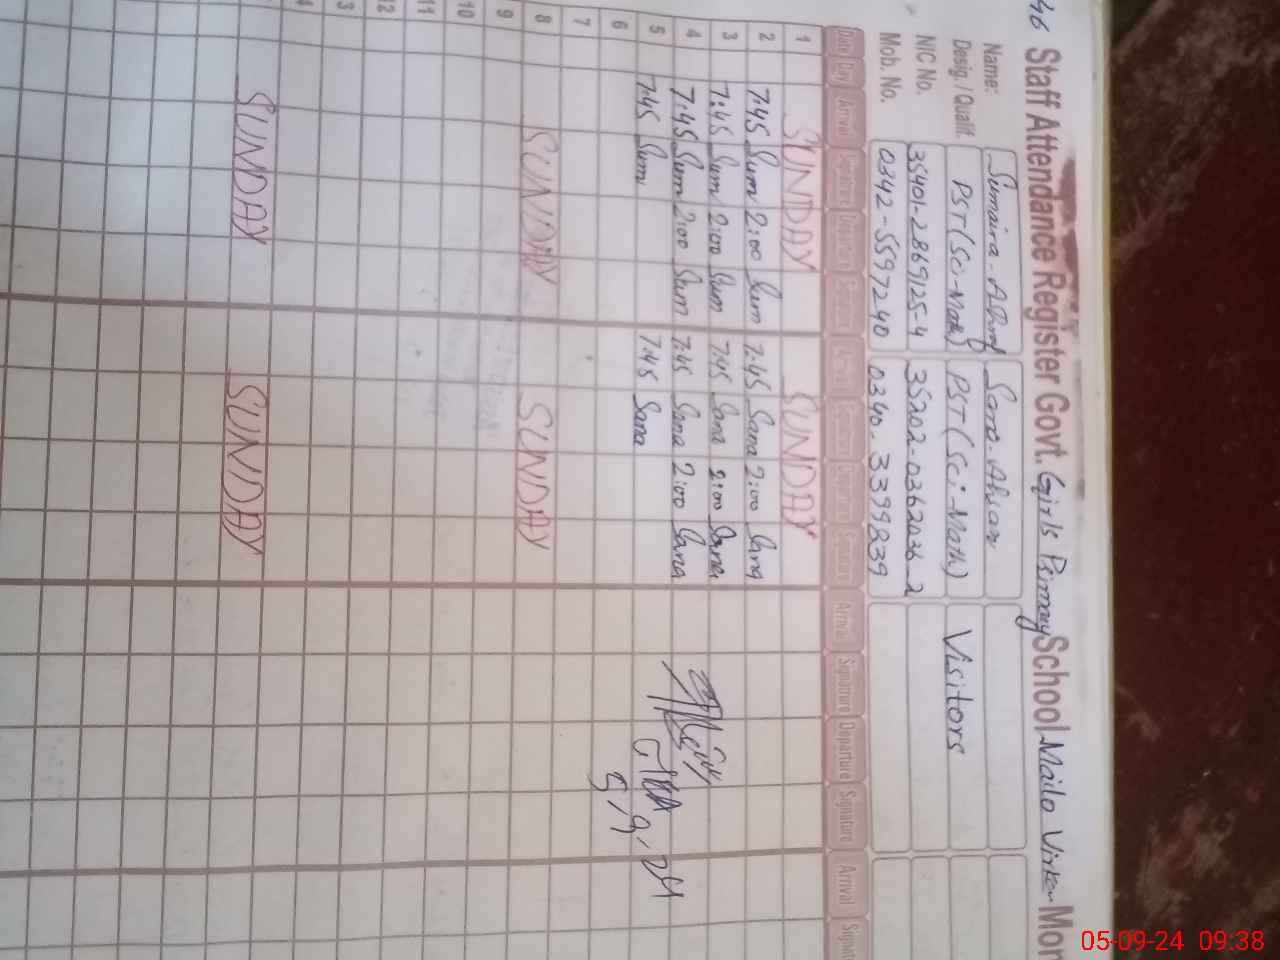 46 Staff Attendance Register Govt. Girls Primary School Mailo Virker Mon
Name: Sumaira Sana Ahsan
Desig. / Qualif. PST (Sci-Math) PST (Sci-Math) Visitors
NIC No. 35401-2869125-4 35202-0362036-2
Mob. No. 0342-5597240 0340-3399839
Date Day Arrival Signature Departure Signature Arrival Signature Departure Signature Arrival Signature Departure Signature Arrival Signat
1 SUNDAY SUNDAY
2 7:45 Sum 2:00 Sum 7:45 Sana 2:00 Sana
3 7:45 Sum 2:00 Sum 7:45 Sana 2:00 Sana
4 7:45 Sum 2:00 Sum 7:45 Sana 2:00 Sana
5 7:45 Sum 7:45 Sana
6 5,9,24
7
8 SUNDAY SUNDAY
9
10
11
12
13
SUNDAY SUNDAY
05-09-24 09:38